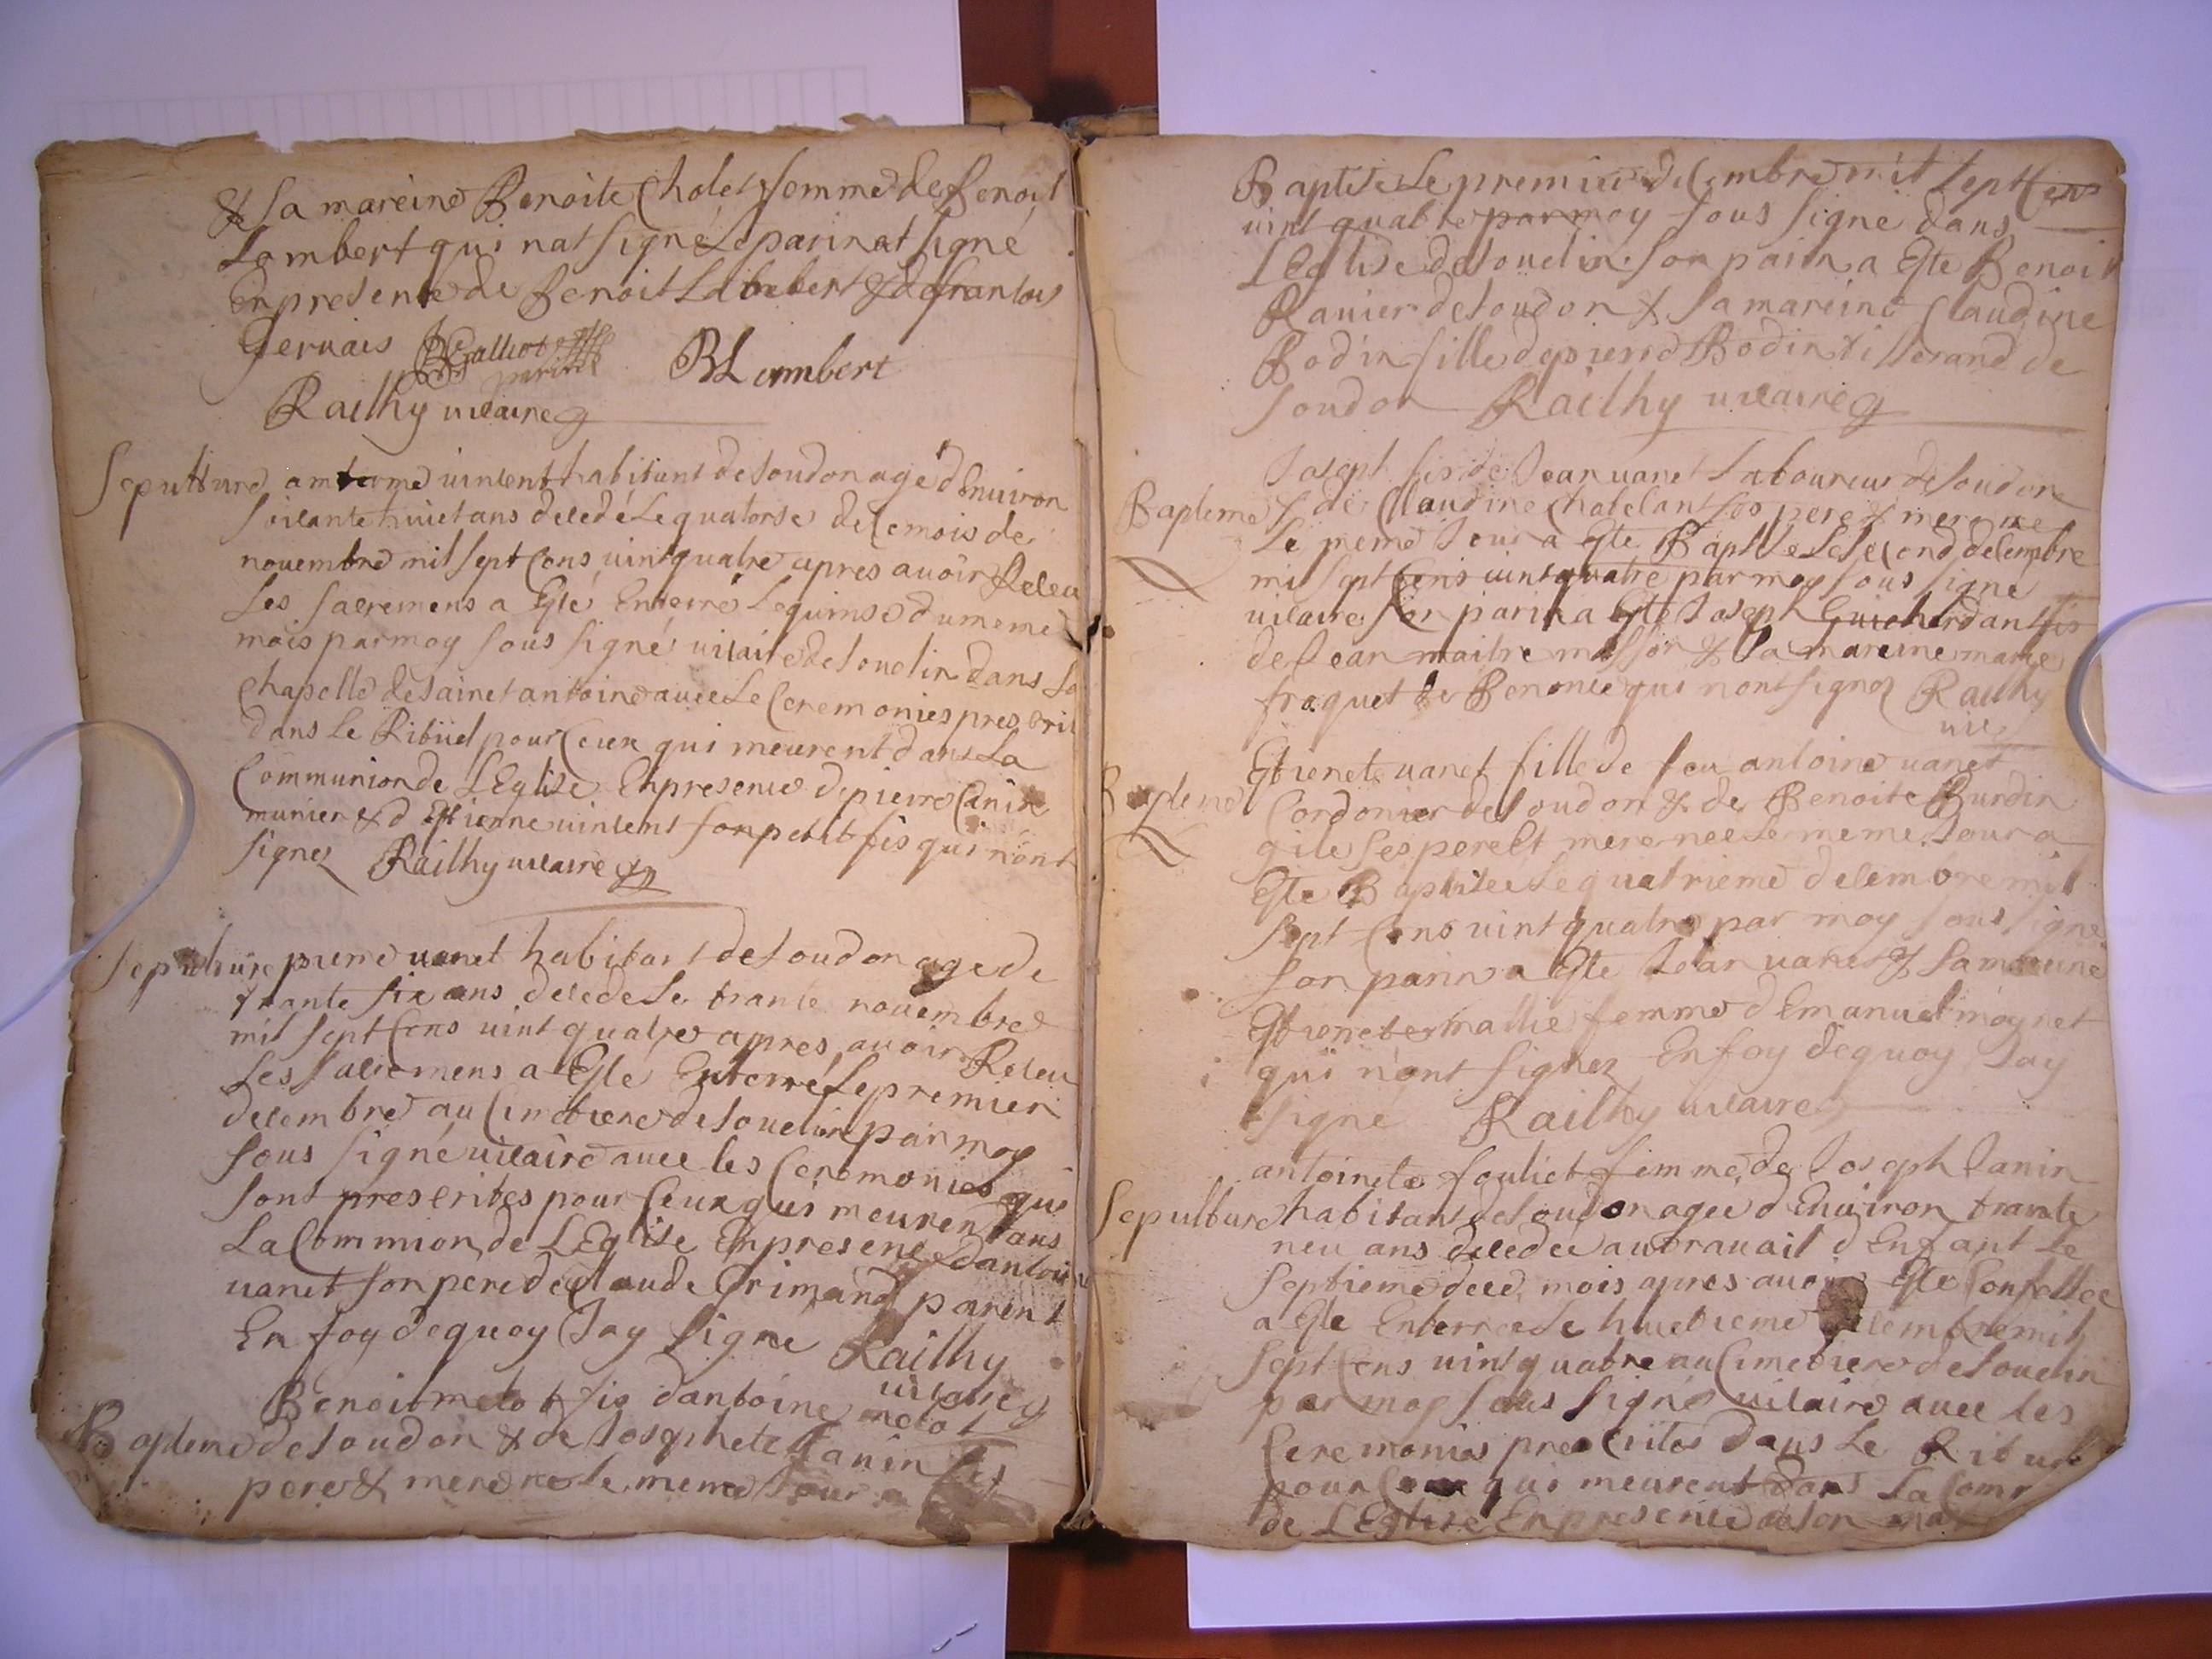 & sa mareine Benoite Cholet femme de Benoit
Lambert qui nat signé Le parin at signé
En presence de Benoit Lambert & de francois
Gervais BGalliot parin BLambert
Railhy vicaire
Sepulture antoine vincent habitant de soudon agé d Environ
soixante huict ans decedé Le quatorse de ce mois de
novembre mil sept Cens vint quatre apres avoir Receu
Les sacremens a Eté Enterré Le quinse du meme
mois par moy sous signé vicaire de souclin dans La
Chapelle de sainct antoine avec Le Ceremonies prescri
dans Le Rituel pour Ceux qui meurent dans La
Communion de L Eglise En presence de pierre Canin
munier & d Etienne vincent son petit fis qui nont
signez Railhy vicaire
Sepulture pierre vanet habitant de soudon age de
trante six ans decede Le trante novembre
mil sept Cens vint quatre apres avoir Receu
Les sacremens a Eté Enterré Le premier
decembre au Cimetiere de souclin par moy
sous signé vicaire avec les Ceremonies qui
sont prescrites pour Ceux qui meurent dans
La Commnion de L Eglise En presence dantoine
vanet son pere de Claude Grimand parent
En foy de quoy Jay signé Railhy
vicaire
Benoit melot fis dantoine melot
Bapteme de soudon & de Josephete Janin ses
pere & mere ne le meme Jour a
Baptise Le premier decembre mil sept Cens
vint quatre par moy sous signé dans
L Eglise de souclin son parin a Ete Benoit
Ravier de soudon & sa mareine Claudine
Bodin fille de pierre Bodin tisserand de
soudon Railhy vicaire
Joseph fis de Jean vanet Laboureur de soudon
Bapteme & de Claudine Chatelant ses pere & mere ne
Le meme Jour a Ete Baptise Le second decembre
mil sept Cens vint quatre par moy sous signé
vicaire son parin a Ete Joseph Guichardant fis
de Jean maitre masson & sa mareine marie
froquet de Benonce qui nont signez Railhy
vic
Etienete vanet fille de feu antoine vanet
Bapteme Cordonier de soudon & de Benoite Burdin
ses pere Et mere nee Le meme Jour a
Ete Baptisee Le quatrieme decembre mil
sept Cens vint quatre par moy sous signé
son parin a Ete Jean vanet & sa mareine
Etienete mallie femme d Emanuel mognet
qui nont signez En foy de quoy Jay
signé Railhy vicaire
antoinete fouliet femme de Joseph Janin
Sepulture habitant de soudon agee d Environ trante
neu ans decedee au travail d Enfant Le
septieme de ce mois apres avoir Ete Confessee
a Ete Enterree Le huictieme decembre mil
sept Cens vint quatre au Cimetiere de souclin
par moy sous signé vicaire avec Les
Ceremonies prescrites dans Le Rituel
pour Ceux qui meurent dans La Comm
de L Eglise En presence de son mari